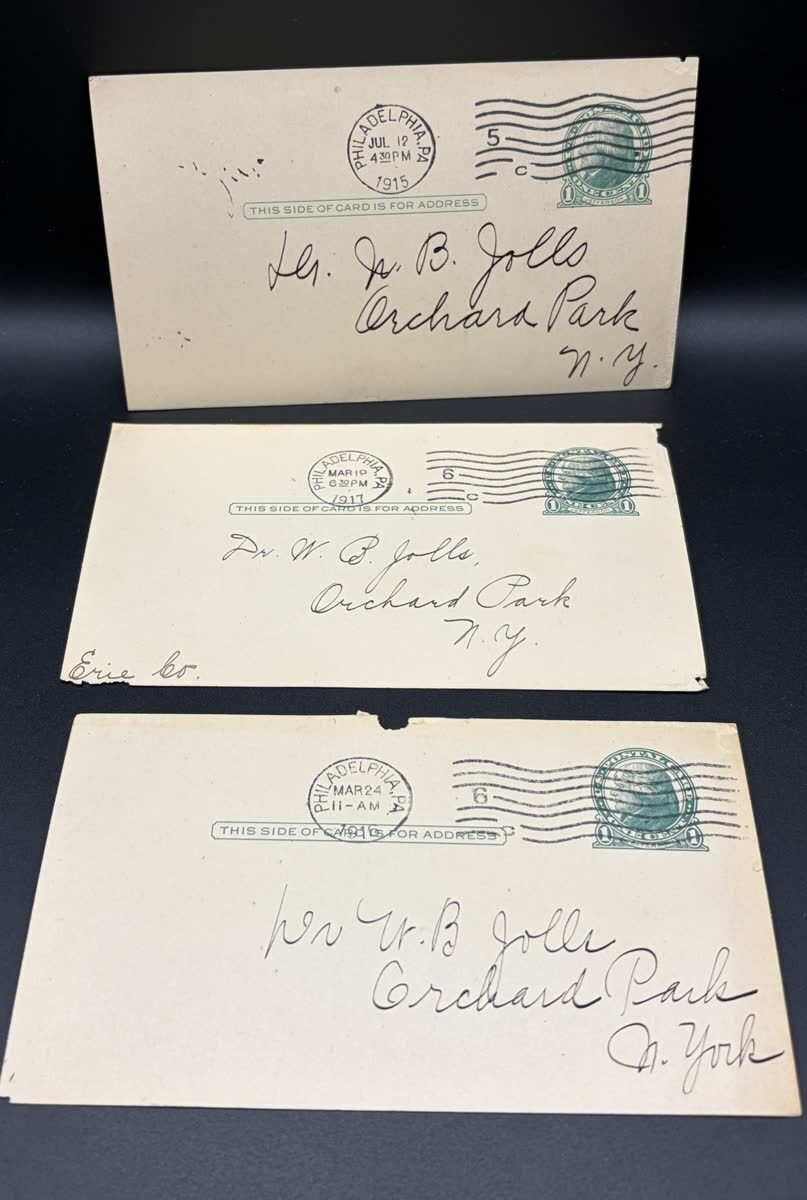 PHILADELPHIA, PA.
JUL 12
4 30 PM
1915
5
C
1 ONE CENT 1
JEFFERSON
THIS SIDE OF CARD IS FOR ADDRESS
Dr. W. B. Jolls
Orchard Park
N. Y.
PHILADELPHIA, PA.
MAR 19
6 30 PM
1917
6
C
1 1
JEFFERSON
THIS SIDE OF CARD IS FOR ADDRESS
Dr. W. B. Jolls,
Orchard Park
N. Y.
Erie Co.
PHILADELPHIA, PA.
MAR 24
11-AM
6
C
U.S. POSTAL CARD
1 ONE CENT 1
JEFFERSON
THIS SIDE OF CARD IS FOR ADDRESS
Dr W. B Jolls
Orchard Park
N. York